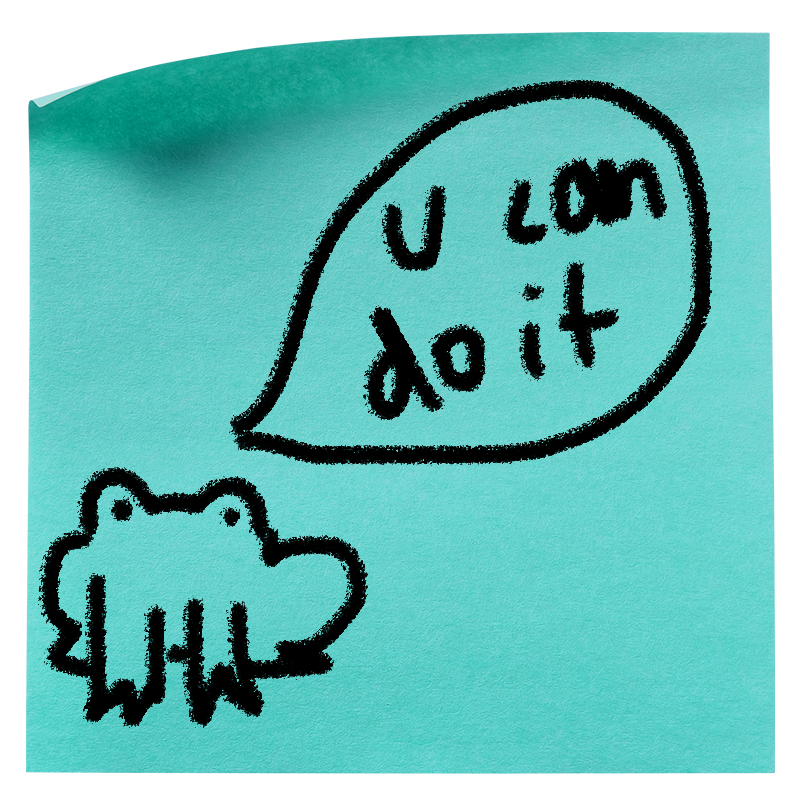 u can
do it